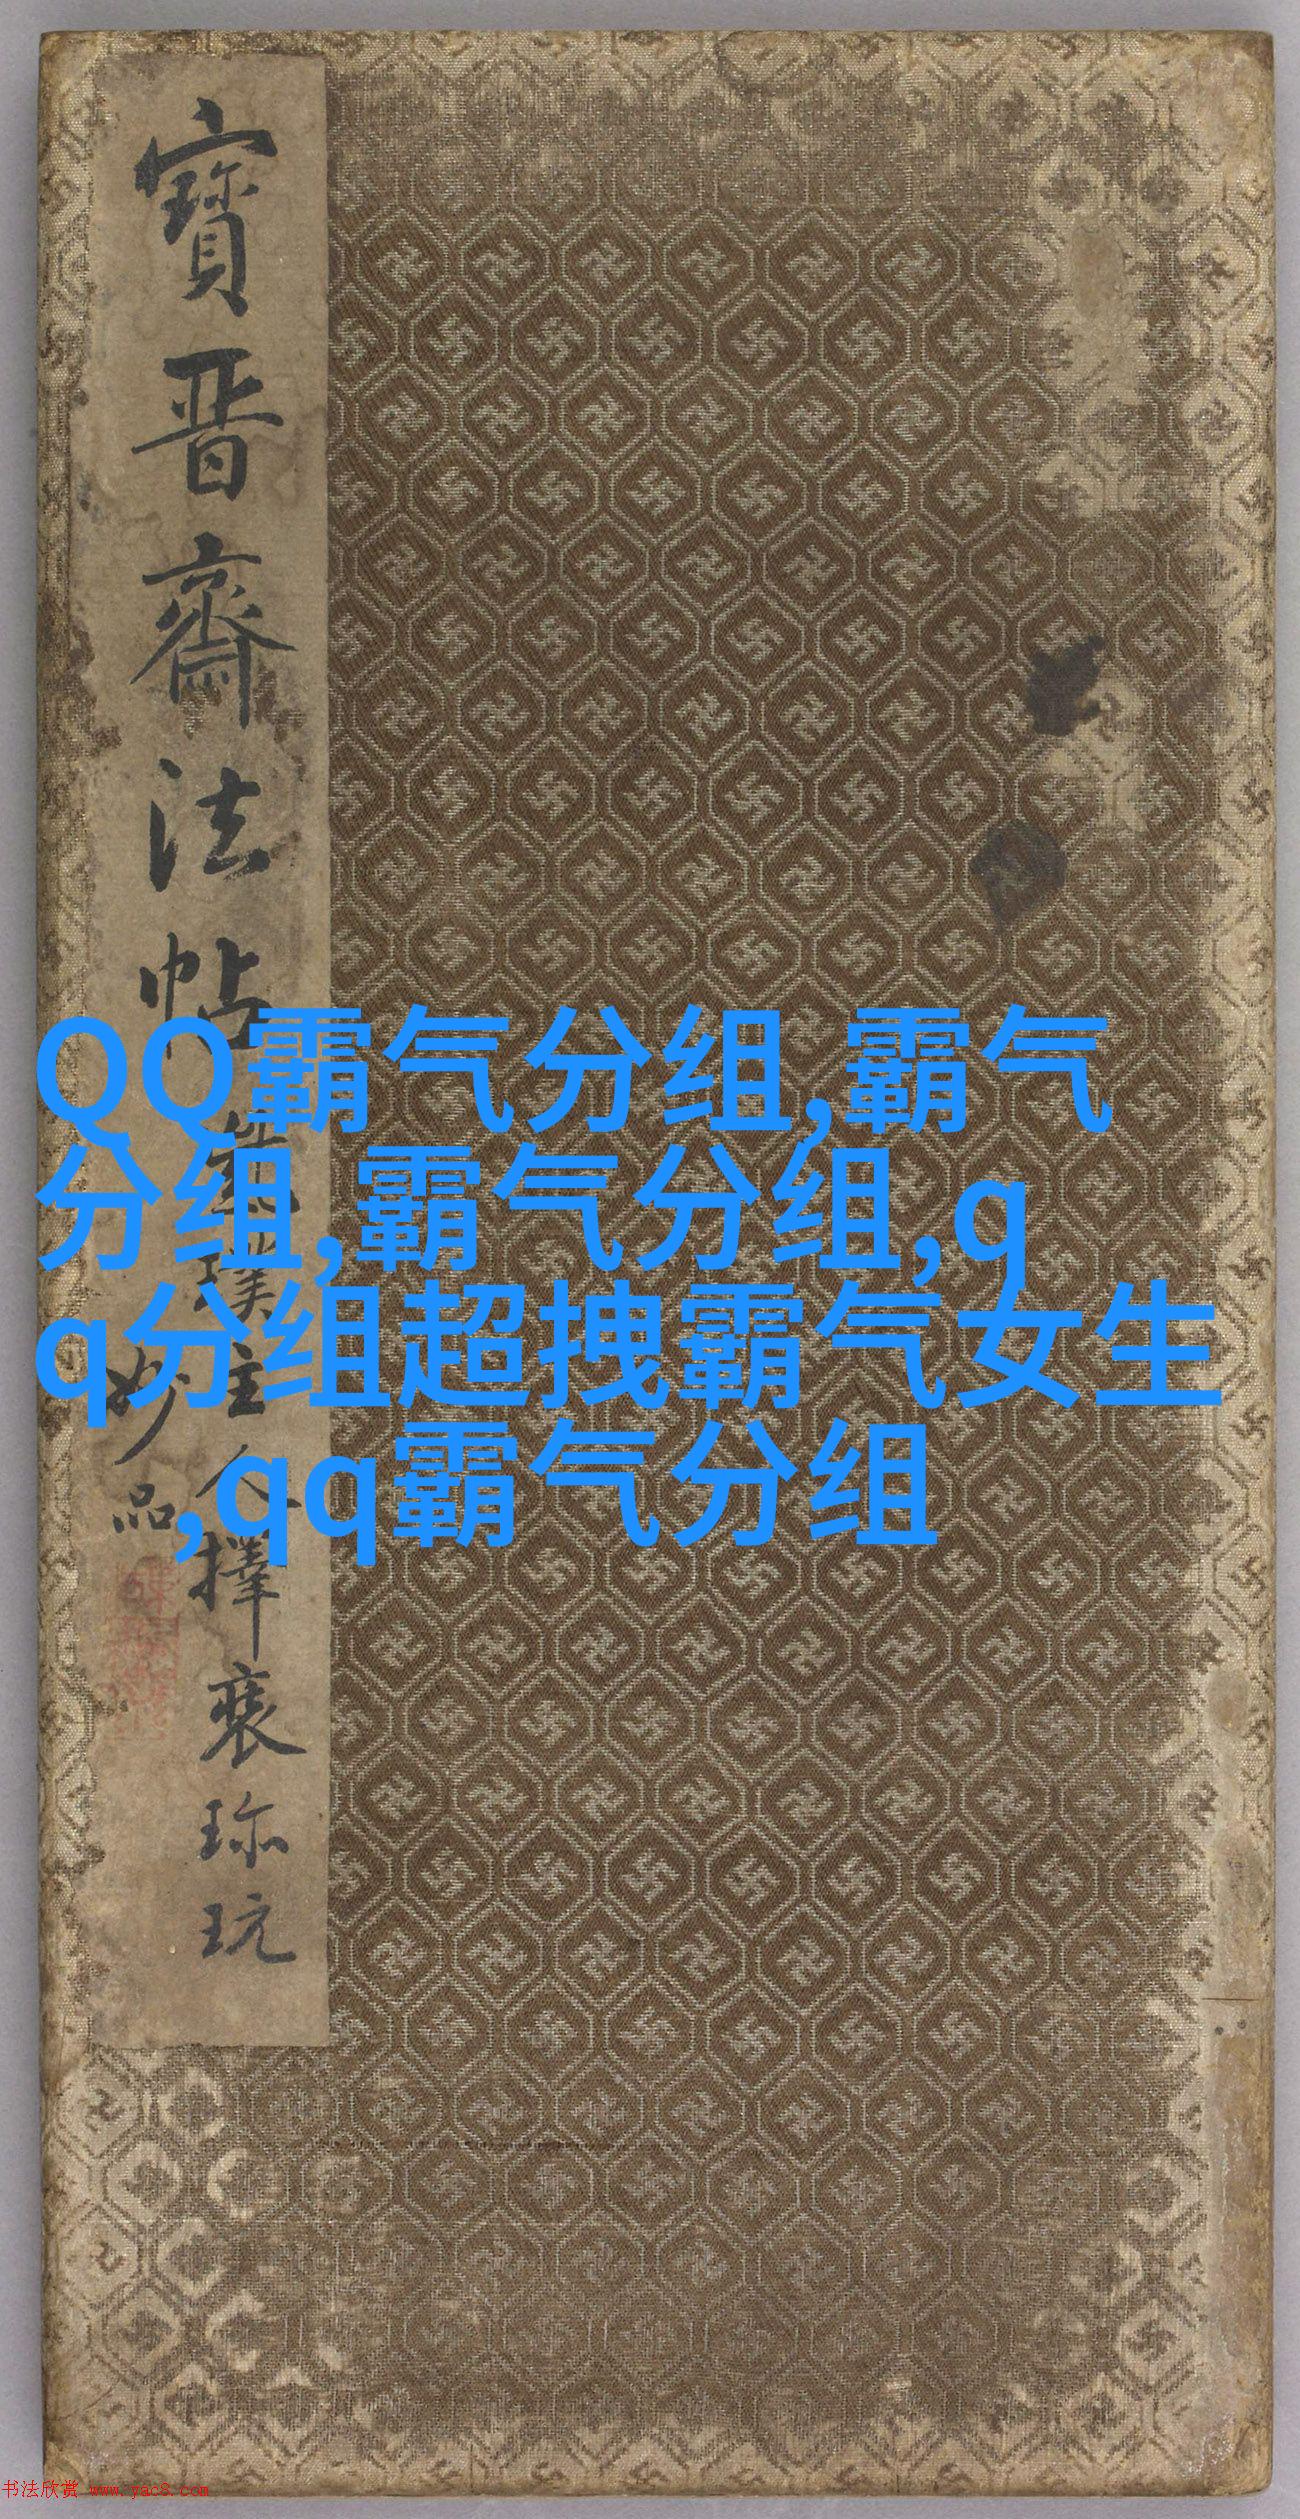 寶晋齋法帖
主人擇裘珎玩
妙品
QQ霸气分组,霸气
分组,霸气分组,q
q分组超拽霸气女生
,qq霸气分组
书法欣赏 www.yac8.com